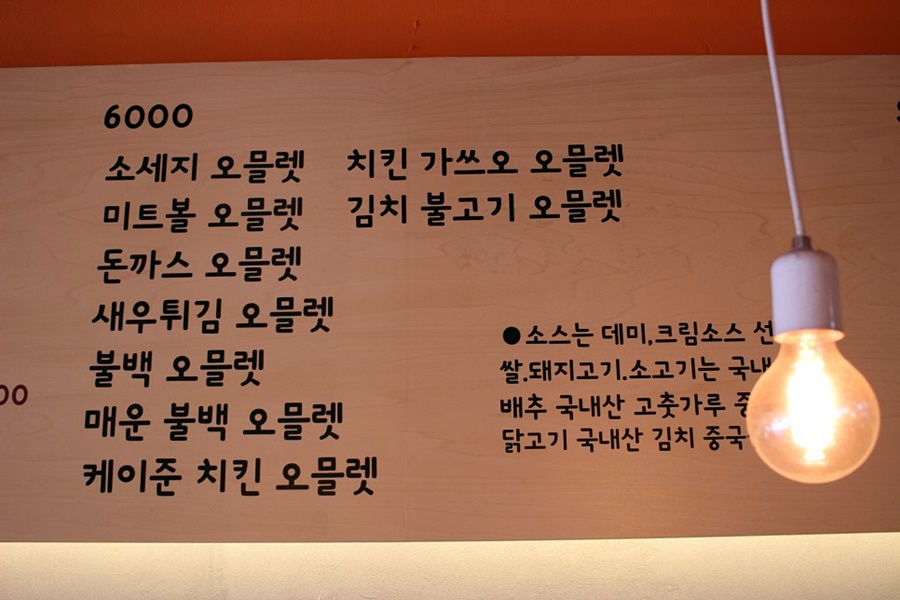 6000
소세지 오믈렛 치킨 가쓰오 오믈렛
미트볼 오믈렛 김치 불고기 오믈렛
돈까스 오믈렛
새우튀김 오믈렛
불백 오믈렛
매운 불백 오믈렛
케이준 치킨 오믈렛
●소스는 데미,크림소스
쌀.돼지고기.소고기는
배추 국내산 고춧가루
닭고기 국내산 김치
00